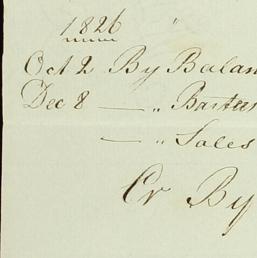 1826 "
Oct 2 By Balan
Dec 8 — „ Barter
— „ Sales
Cr By